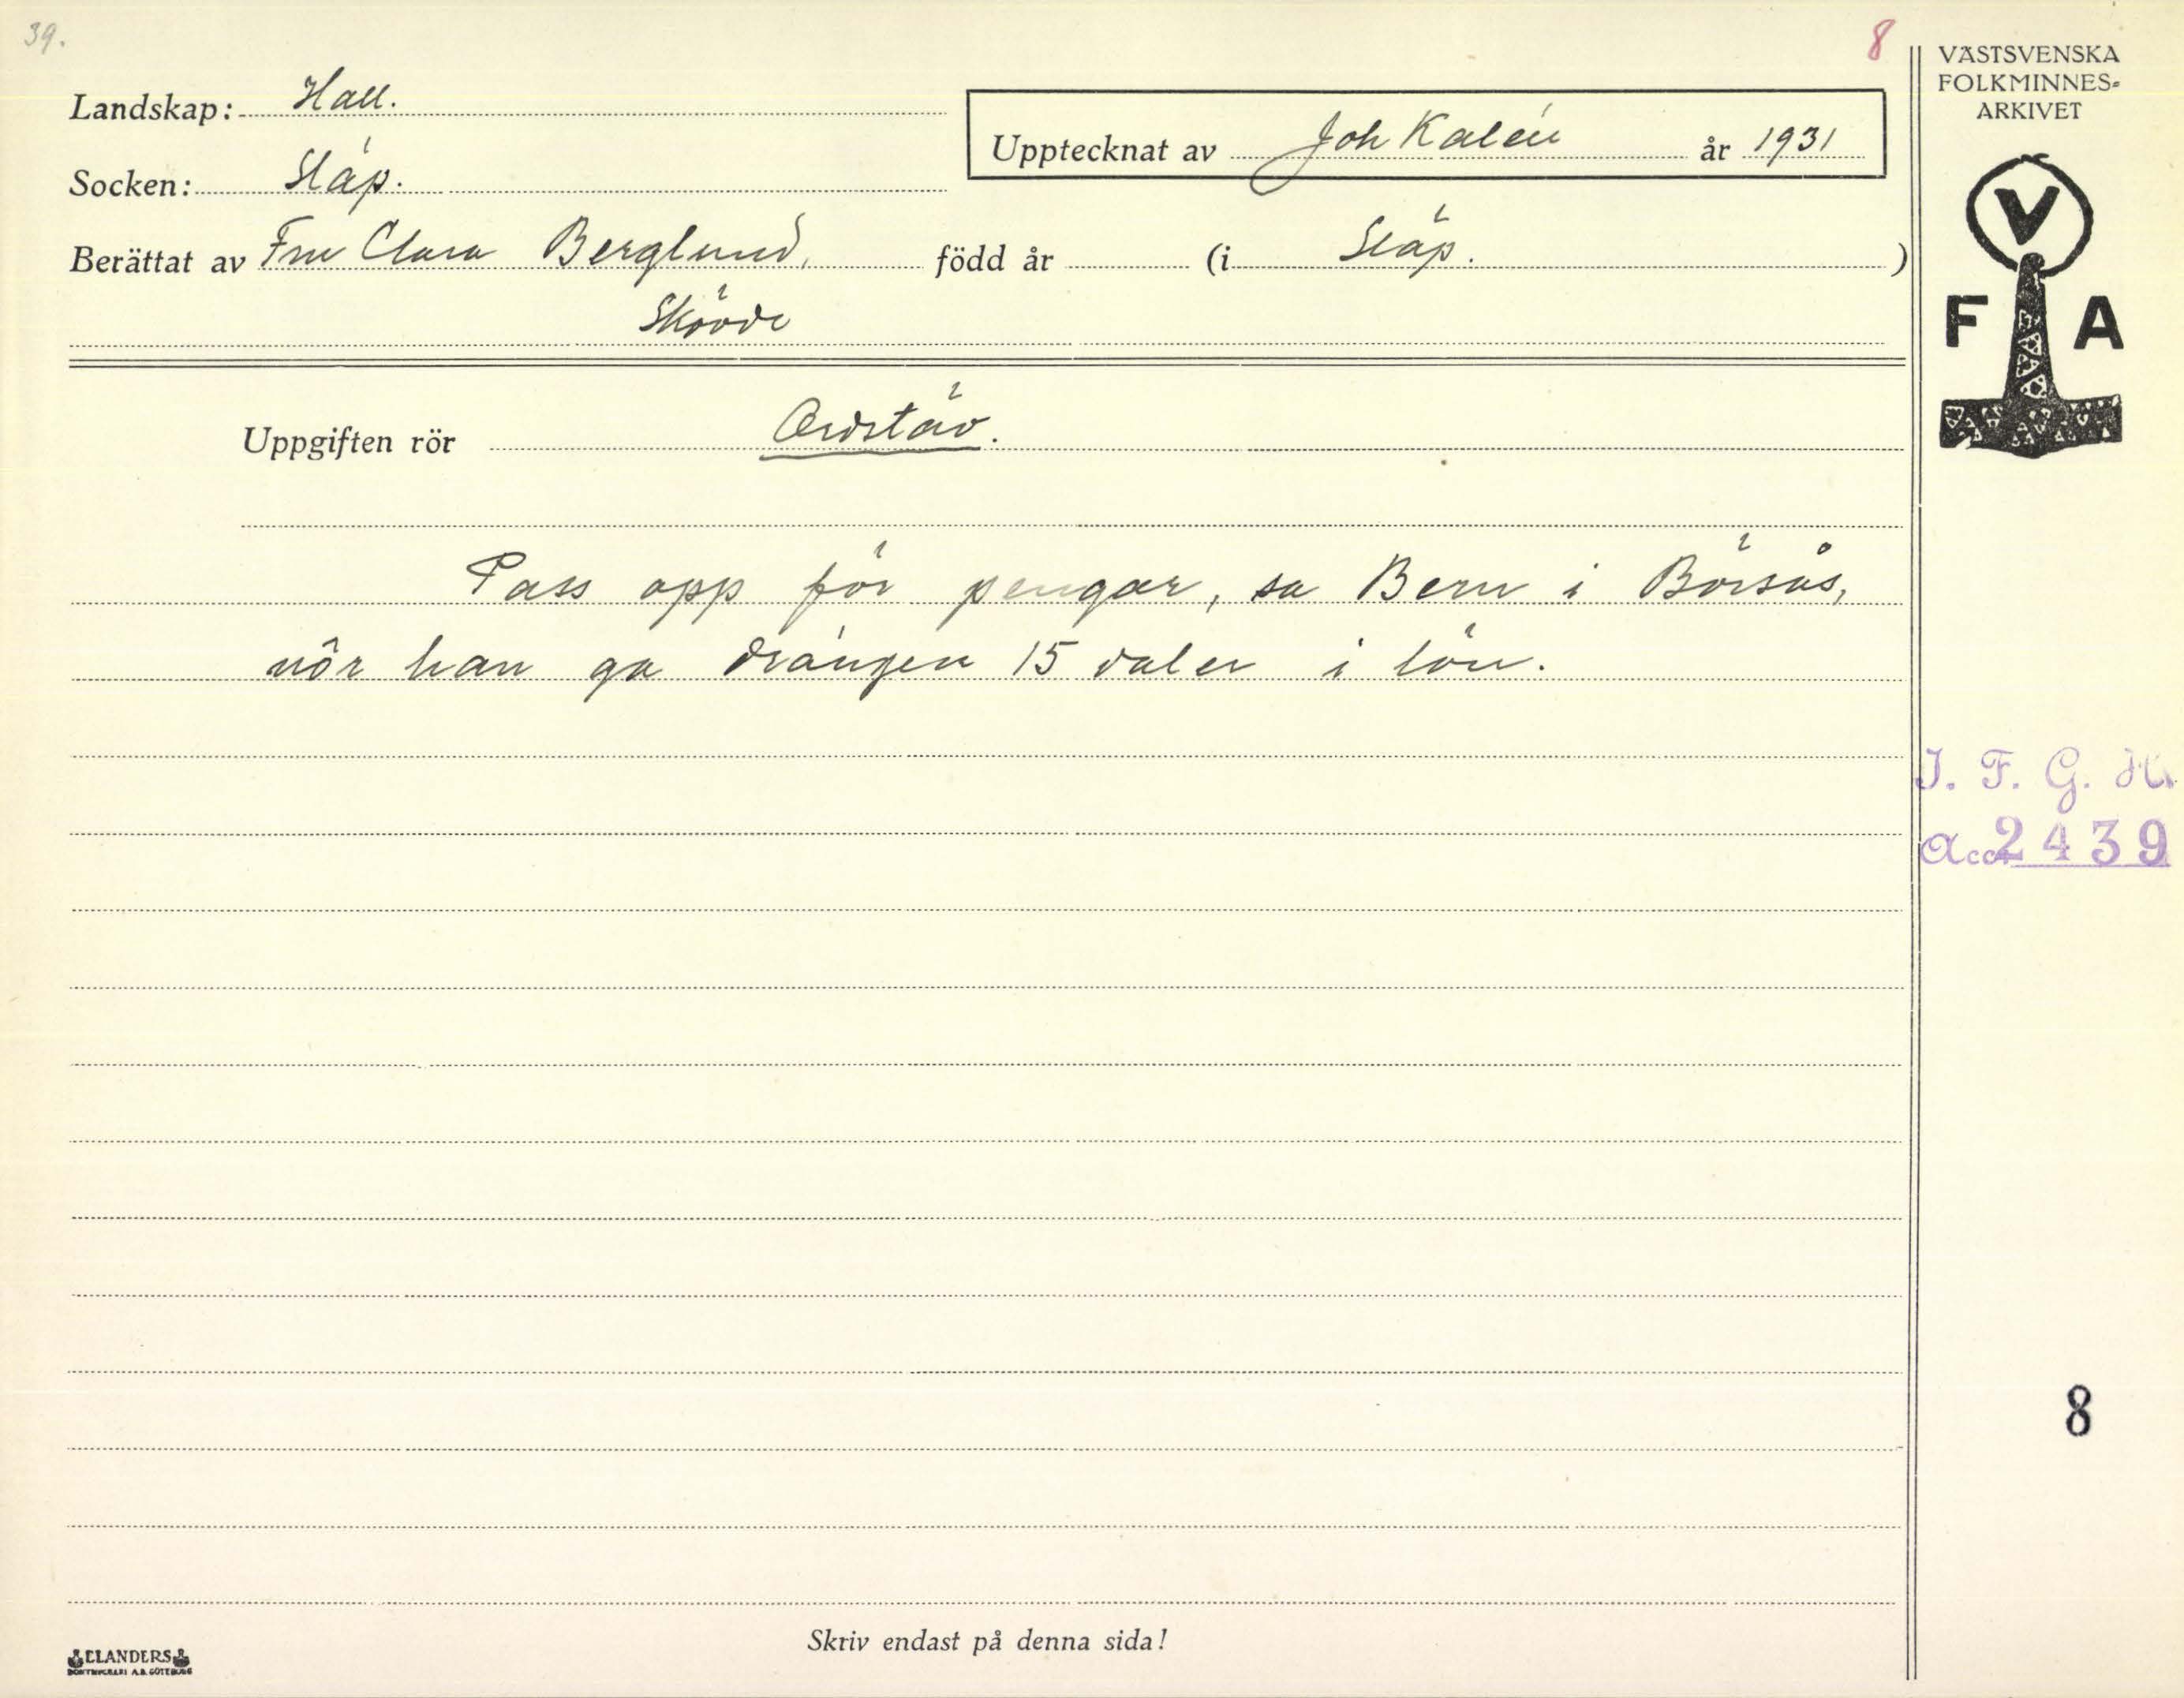 39.
8
VÄSTSVENSKA
FOLKMINNES-
ARKIVET
Landskap: Hall.
Upptecknat av Joh Kalén år 1931
Socken: Släp.
Berättat av Fru Clara Berglund, född år (i Släp. )
Skövde
V
F A
Uppgiften rör Ordstäv.
Pass opp för pengar, sa Bern i Börsås,
när han ga drängen 15 daler i lön.
I. F. G. H.
Acc. 2439
8
Skriv endast på denna sida!
ELANDERS
BOKTRYCKERI A.B. GÖTEBORG